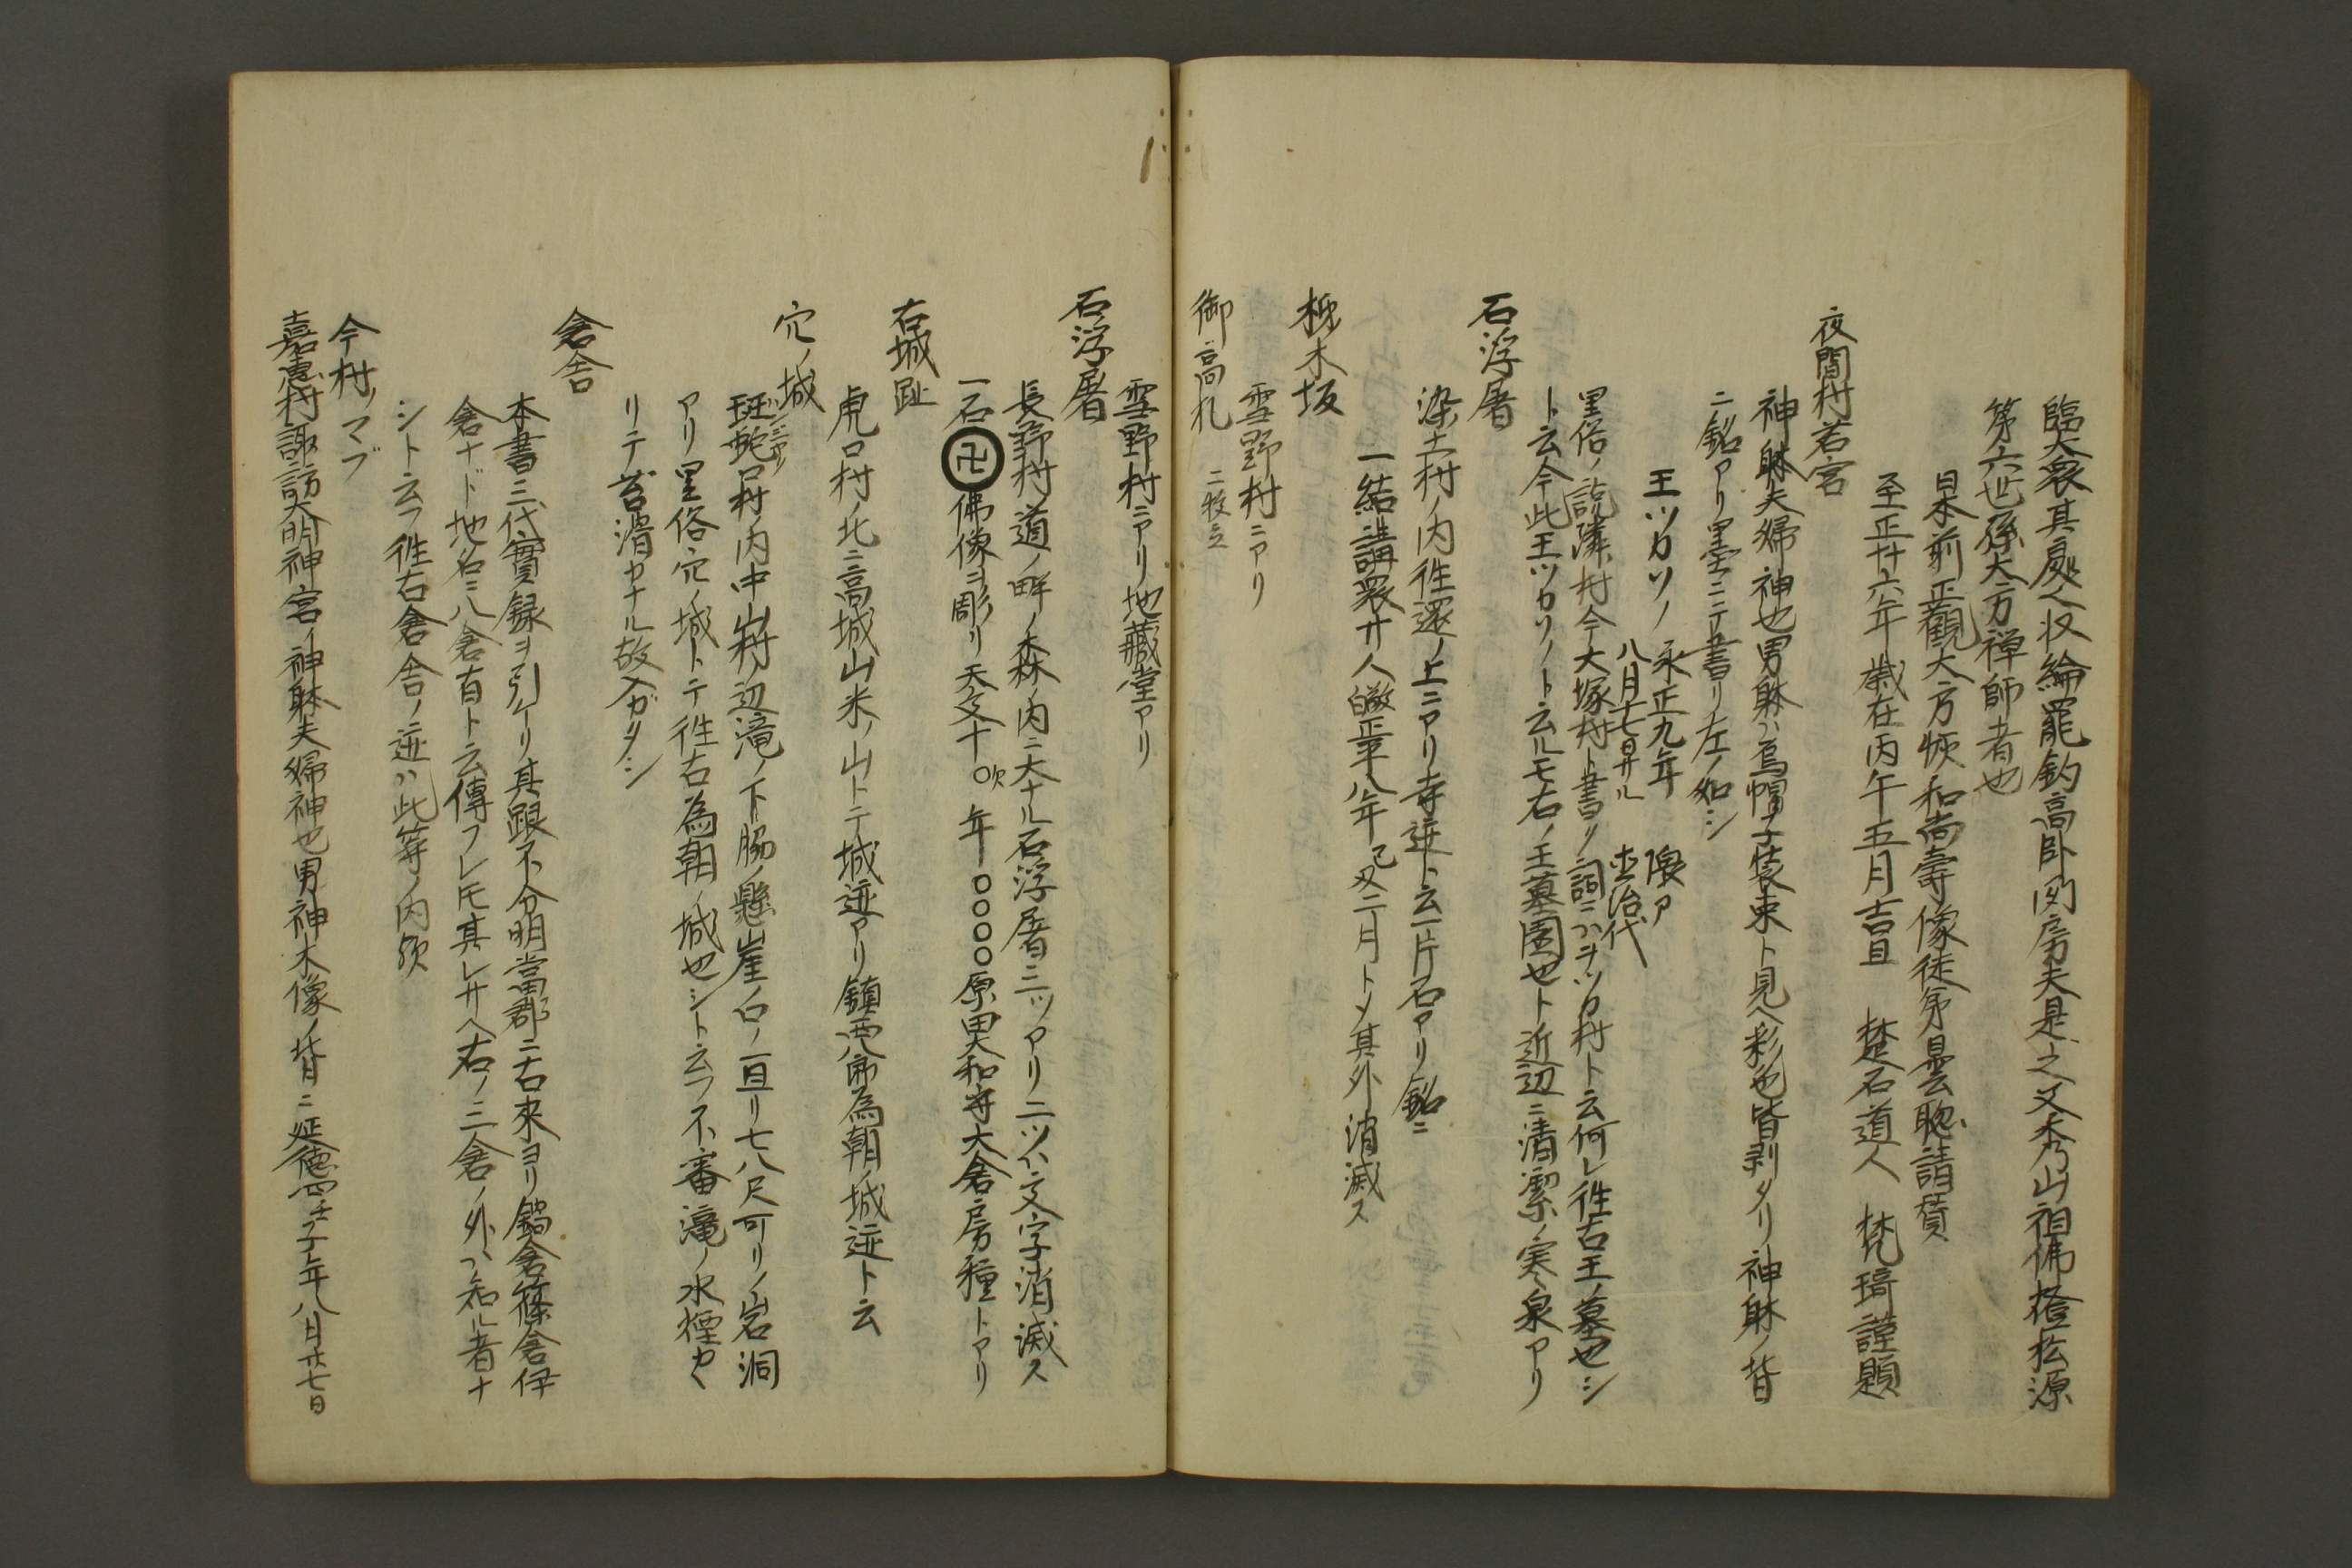 臨大衆其處入収綸罷釣高臥閃房夫是之又秀山祖佛橙松源
第六世孫大方禅師者也
日本前正觀大方恢和尚壽像徒弟曇聰請賛
至正廿六年歳在丙午五月吉旦 楚石道人 梵琦謹題
夜間村若宮
神躰夫婦神也男躰ハ烏帽子装束ト見ヘ彩色皆剥タリ神躰ノ背
ニ銘アリ墨ニテ書リ左ノ如シ
王ツカソノ 永正九年
八月十七日サル
里俗ノ説隣村今大塚村ト書リ詞ニハヲツカ村ト云何レ徃古王ノ墓也シ
ト云今此王ツカソノト云ルモ右ノ王墓園也ト近辺ニ清潔ノ寒泉アリ
石浮屠
染土村ノ内徃還ノ上ニアリ寺迹ト云一片石アリ銘ニ
一結講衆廿人敬白正平八年己又二月トメ其外消滅ス
栃木坂
雪野村ニアリ
御高札 二牧立
雪野村ニアリ地藏堂アリ
石浮屠
長野村道ノ畔ノ森ノ内ニ大ナル石浮屠三ツアリ二ツハ文字消滅ス
一石卍佛像ヲ彫リ天文十〇欤年〇〇〇〇原田大和守大倉房種トアリ
古城趾
虎口村ノ北ニ高城山米ノ山トテ城迹アリ鎮西八郎為朝ノ城迹ト云
穴ノ城
斑蛇口村ノ内中山村ノ辺滝ノ下脇ノ懸崖ノ口ノ亘リ七八尺可リノ岩洞
アリ里俗穴ノ城トテ徃古為朝ノ城也シト云フ不審滝ノ水煙カヽ
リテ苔滑カナル故入ガタシ
倉舎
本書三代實録ヲ引ケリ其跟不分明當郡ニ古来ヨリ鎰倉篠倉伊
倉ナド地名ニハ倉有ト云傳フレ𪜈其レサヘ右ノ三倉ノ外ハ知ル者ナ
シト云フ徃古倉舎ノ迹ハ此等ノ内欤
今村ノマブ
嘉恵村諏訪大明神宮ノ神躰夫婦神也男神木像ノ背ニ延徳四壬子年八月廿七日